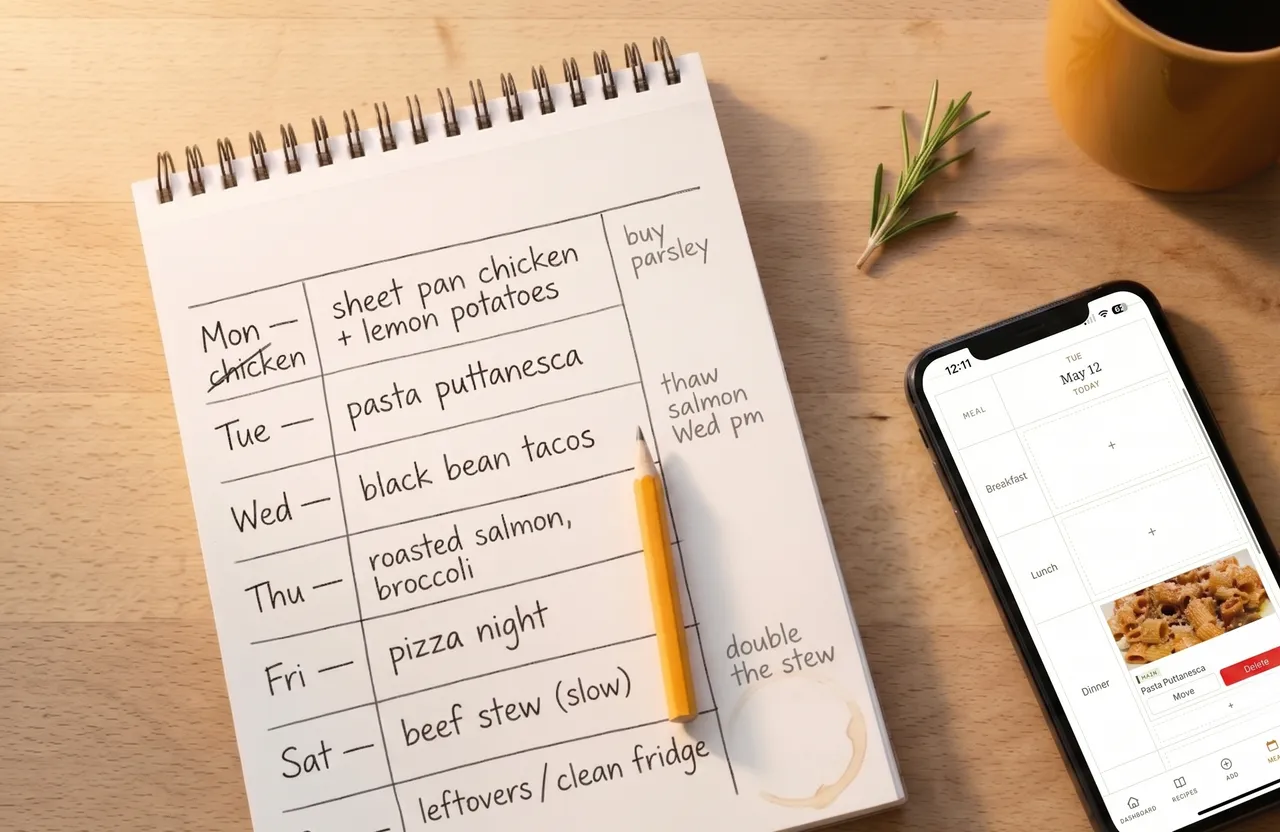 Mon —
chicken
sheet pan chicken
+ lemon potatoes
buy
parsley
Tue —
pasta puttanesca
thaw
salmon
Wed pm
Wed —
black bean tacos
Thu —
roasted salmon,
broccoli
Fri —
pizza night
double
the stew
Sat —
beef stew (slow)
leftovers / clean fridge
12:11
MEAL
TUE
May 12
TODAY
Breakfast
+
Lunch
+
Dinner
MAIN
Pasta Puttanesca
Move
Delete
+
DASHBOARD
RECIPES
ADD